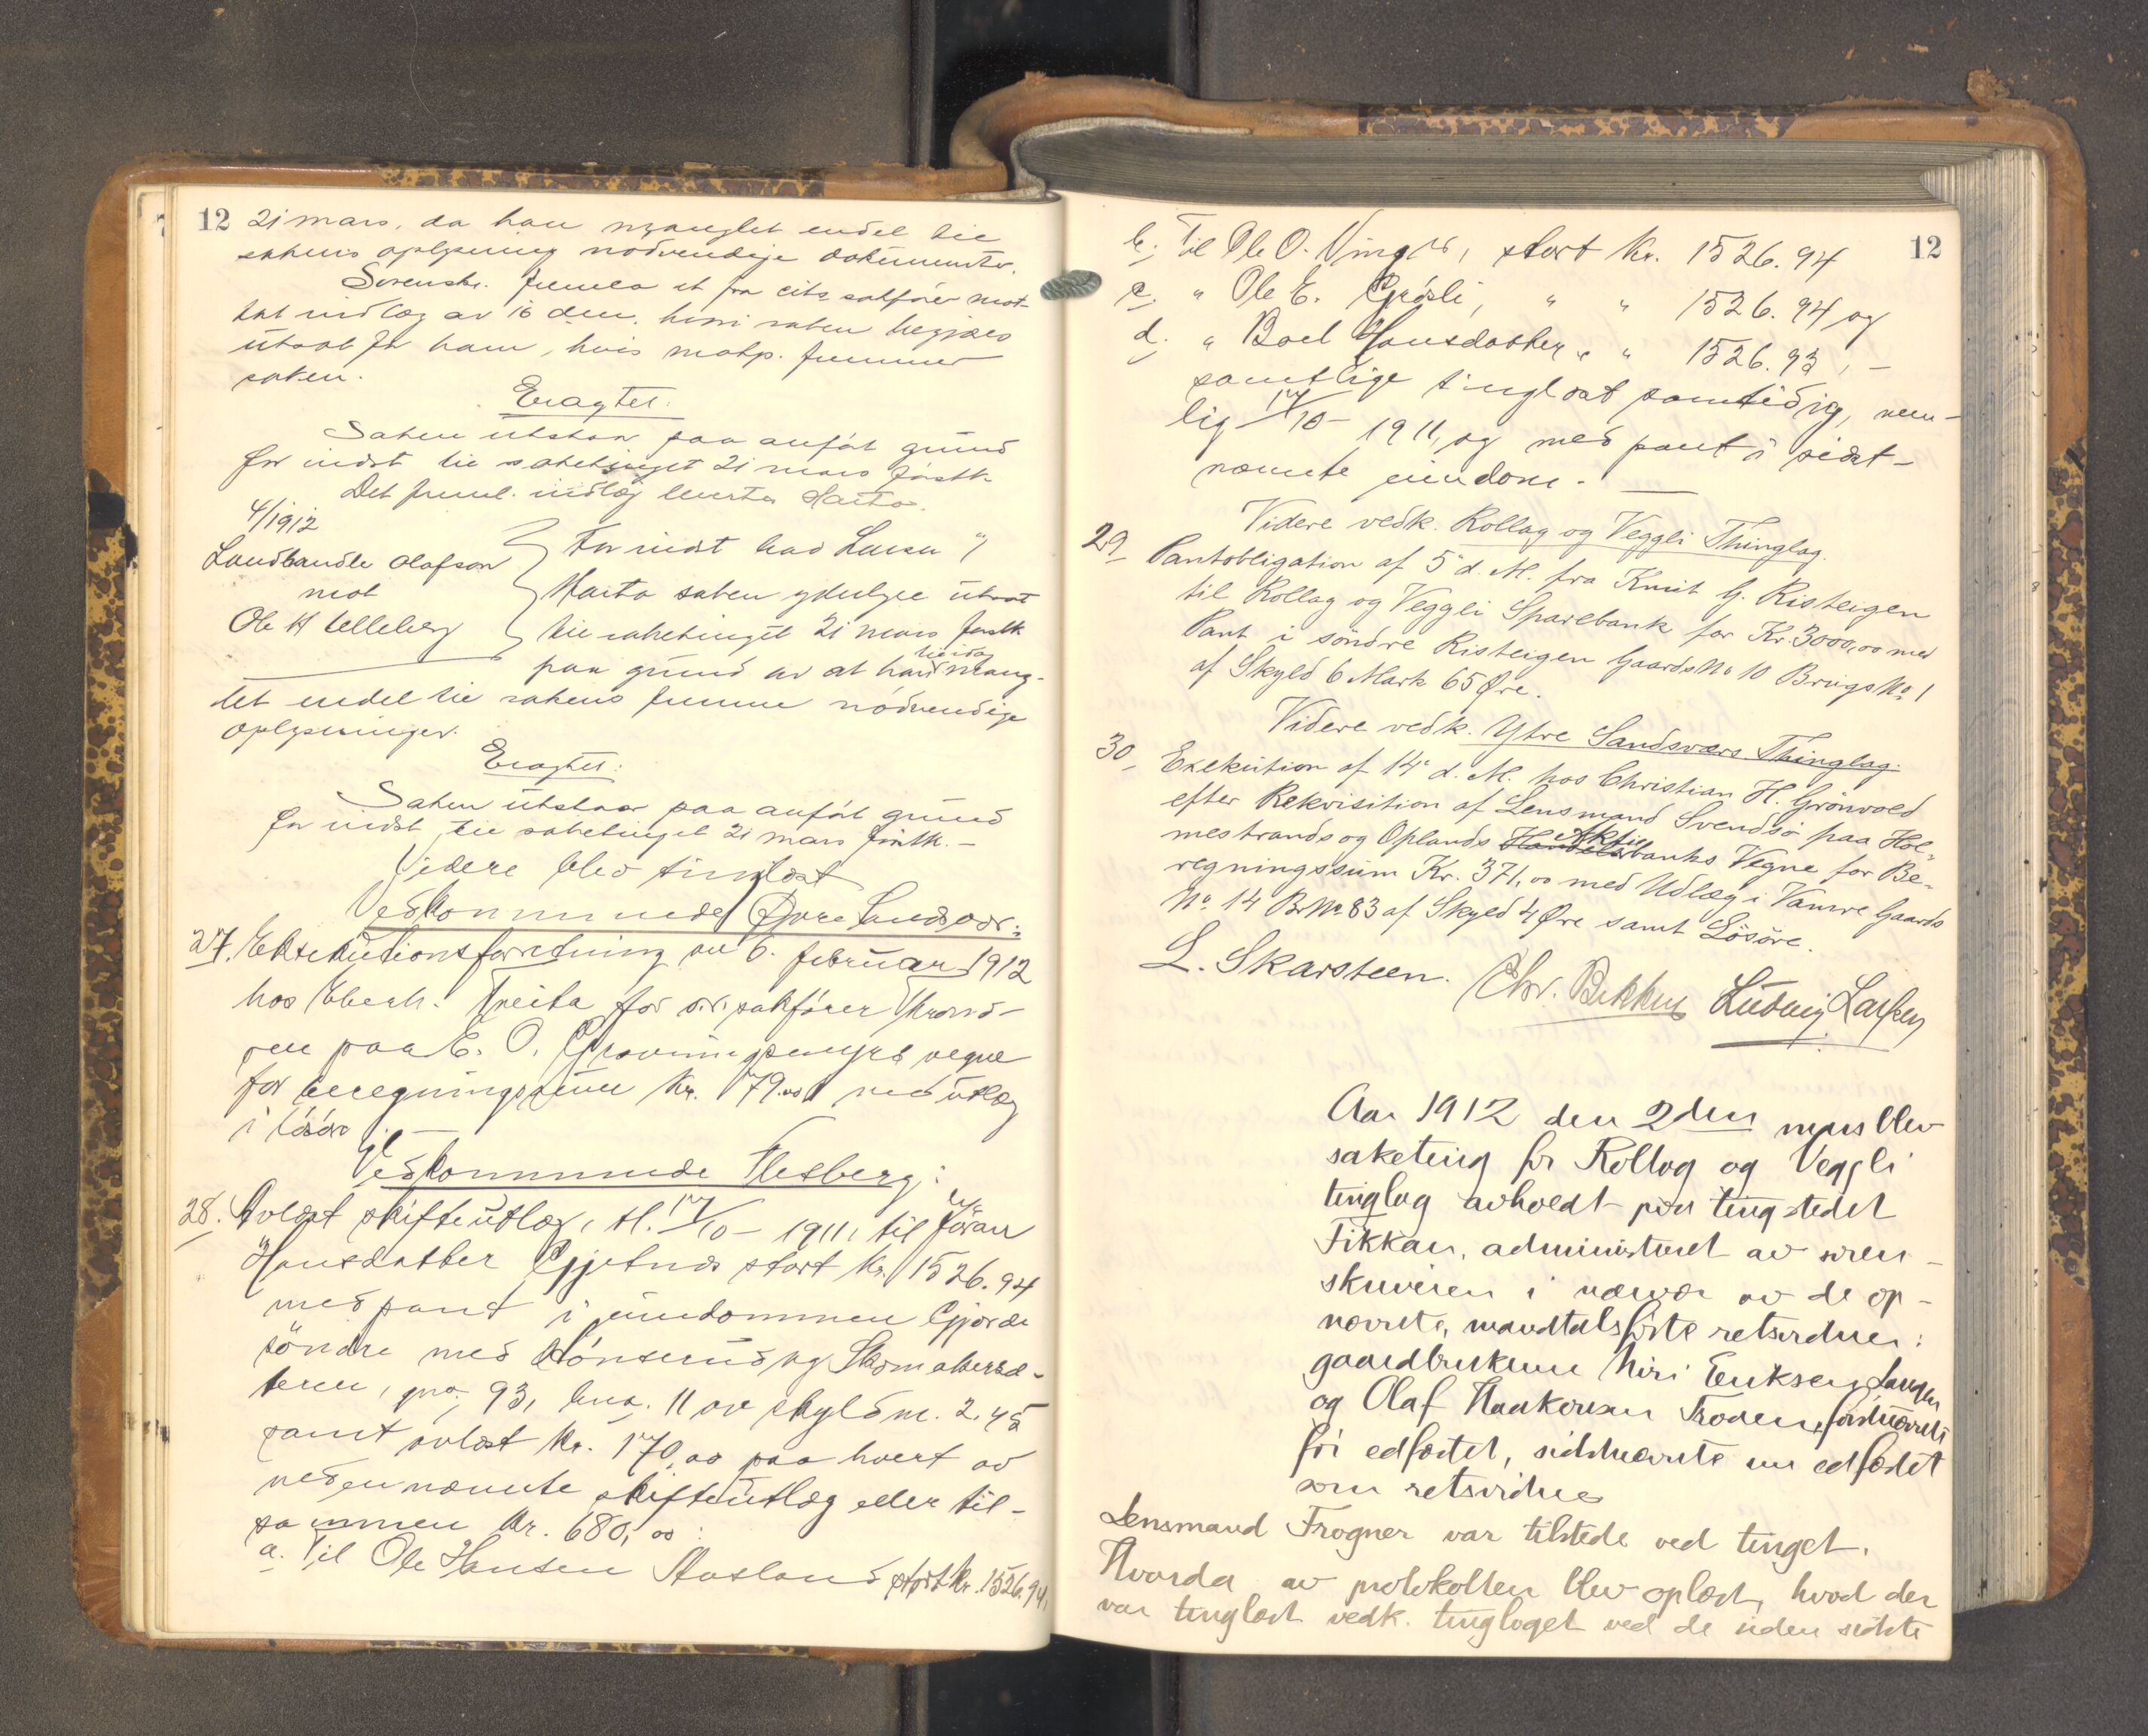 12
21 mars, da han manglet endel til
sakens oplysning nødvendige dokumenter.
Sorenskr. freml. et fra cits sakfører mot-
tat indlæg av 16 dm, hvori saken begjæres
utsat for ham, hvis motp. fremmer
saken.
Eragtet:
Saken utstaar paa anført grund
for indst til saketinget 21 mars førstk.
Det freml. indlæg levertes Harto.
4/1912
Landhandler Olafson
mot
Ole H Ulleberg
For indst bad Larsen v/
Harto saken yderligere utsat
til saketinget 21 mars førstk
paa grund av at han heida mang-
let endel til sakens fremme nødvendige
oplysninger.
Eragtet:
Saken utstaar paa anført grund
for indst til saketinget 21 mars førstk. –
Videre blev tinglæst
Vedkommende Øvre Sandsvær:
27. Eksekutionsforretning av 6. februar 1912
hos Eberh. Tveita for o.r.sakfører
paa E. O. vegne
for beregningssum kr. 79.00 med utlæg
i løsøre.
Vedkommende Flesberg:
28. Avlæst skifteutlæg, tl. 17/10 – 1911, til Jøran
Hansdatter Gjetnæs stort kr. 1526.94
med pant i eiendommen Gjorde
søndre med Kønserud og Skomakersæ-
teren, gno. 93, bno. 11 av skyld m. 2.45
samt avlæst kr. 170,00 paa hvert av
nedennævnte skifteutlæg eller til-
sammen kr. 680,00:
a. Til Ole Hansen Aasland stort kr. 1526.94,
12
b. Til Ole O. stort kr. 1526.94
c. " Ole E. Grøsli, " " 1526.94 og
d. " Boel Hansdatter " " 1526.93, –
samtlige tinglæst samtidig, nem-
lig 17/10 – 1911, og med pant i sidst-
nævnte eiendom. –
Videre vedk. Rollag og Veggli Thinglag.
29 Pantobligation af 5' d. M. fra Knut G. Risteigen
til Rollag og Veggli Sparebank for Kr. 3000,00 med
Pant i søndre Risteigen Gaards No 10 Brugs No 1
af Skyld 6 Mark 65 Øre.
Videre vedk. Ytre Sandsværs Thinglag.
30 Exekution af 14' d. M. hos Christian H. Grönvold
efter Rekvisition af Lensmand Svendsö paa Hol-
mestrands og Oplands Aktie
Handelsbanks Vegne for Be-
regningssum Kr. 371,00 med Udlæg i Gaards
No 14 Br No 83 af Skyld 4 Øre samt Lösöre.
L. Skarsteen. Chr. Bekkus Ludvig Larsen
Aar 1912 den 2den mars blev
saketing for Rollag og Veggli
tinglag avholdt paa tingstedet
Fikkan, administreret av soren-
skriveren i nærvær av de op-
nævnte, mandtalsførte retsvidner:
gaardbrukerne Niri Eriksen Langli
og Olaf Haakonsen Traaen, førstnævnte
før edfæstet, sidstnævnte nu edfæstet
som retsvidne
Lensmand Frogner var tilstede ved tinget.
Hvorda av protokollen blev oplæst, hvad der
var tinglæst vedk. tinglaget ved de siden sidste